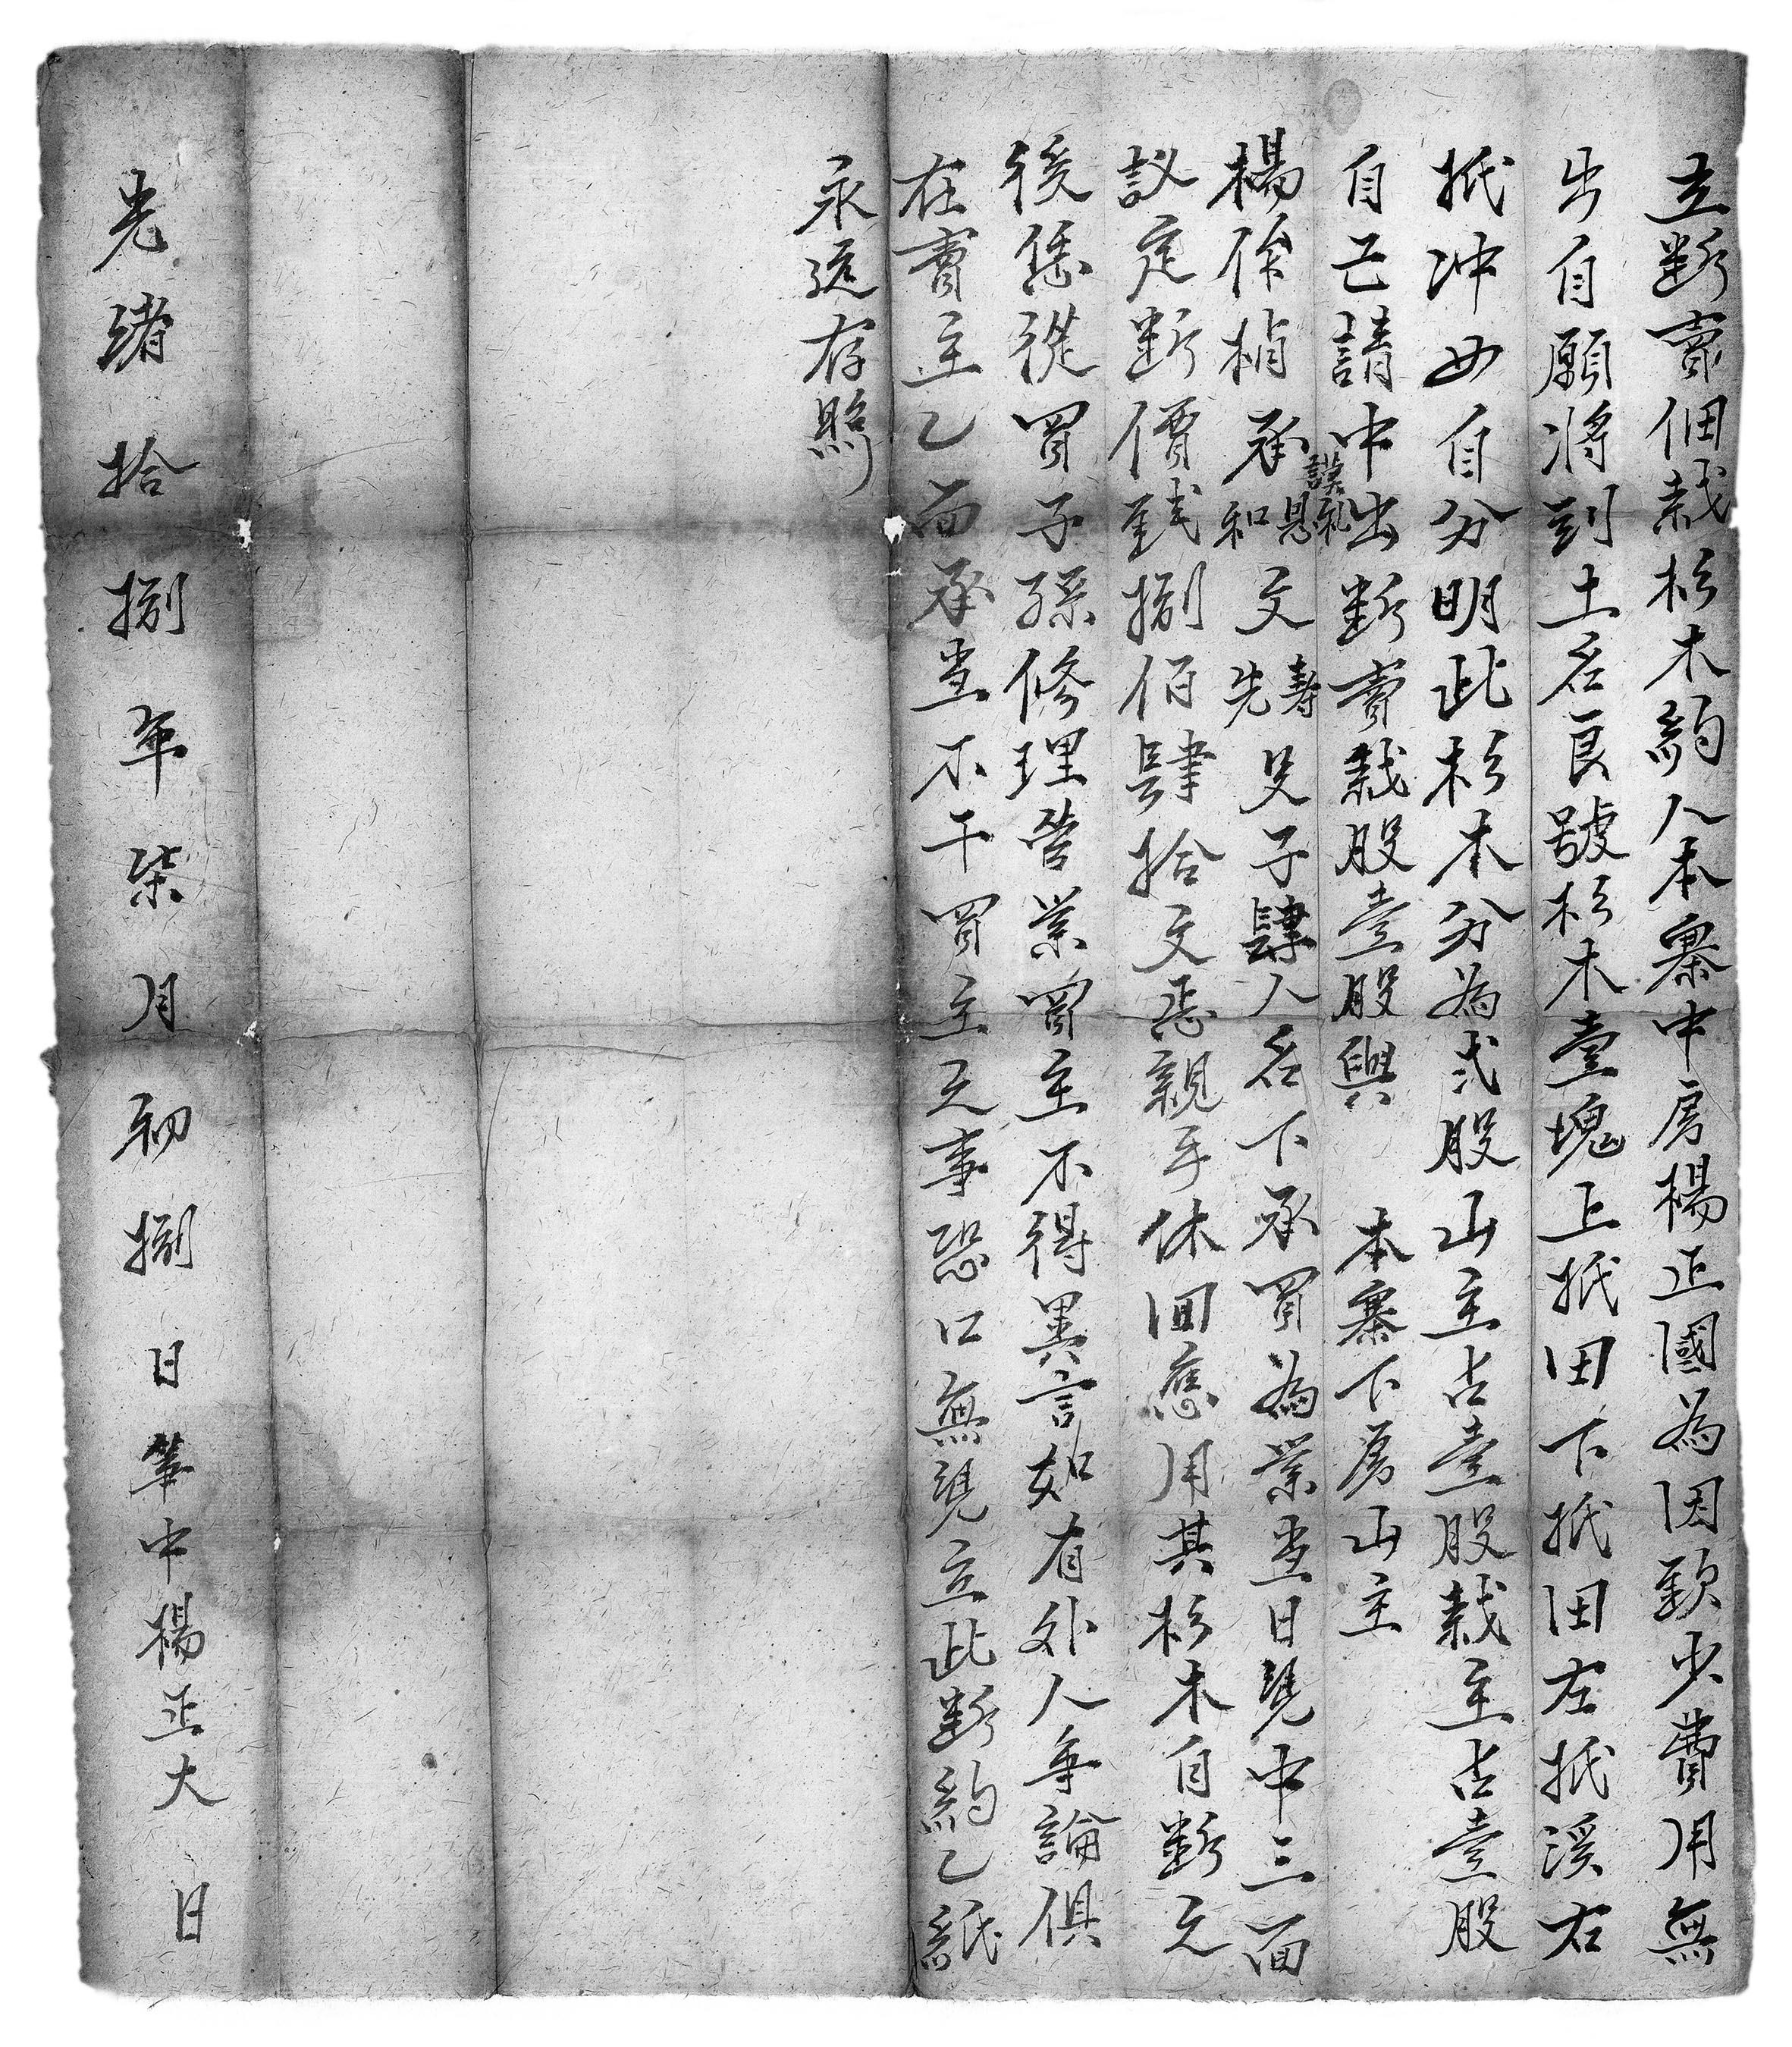 立斷賣佃栽杉木約人本寨中房楊正國為因缺少費用無
出自願將到土名良號杉木壹塊上抵田下抵田左抵溪右
抵冲四自分明此杉木分為弍股山主占壹股栽主占壹股
自己請中出斷賣栽股壹股與 本寨下房山主
楊俗楨承和恩文先壽父子肆人名下承買為業當日凴中三面
謨礼
議定斷價錢捌佰肆拾文忑親手休回應用其杉木自斷之
後恁從買子孫修理管業賣主不得異言如有外人爭論俱
在賣主乙面承當不干買主之事恐口無凴立此斷約乙紙
永遠存照
光緒拾捌年柒月初捌日筆中楊正大 日